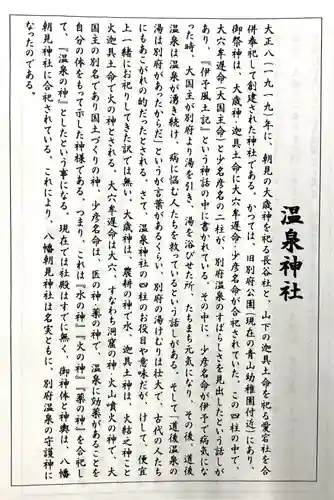 温泉神社
大正八(一九一九)年に、朝見の大歳神を祀る長谷社と、山下の迦具土命を祀る愛宕社を合
併奉祀して創建された神社である。かつては、旧別府公園(現在の青山幼稚園付近)にあり、
御祭神は、大歳神・迦具土命に大穴牟遅命・少彦名命が合祀されていた。この四柱の中で、
大穴牟遅命(大国主命)と少名彦名の二柱が、別府温泉のすばらしさを見出したという話しが
あり、『伊予風土記』という神話の中に書かれている。その中に、少彦名命が伊予で病気にな
った時、大国主が別府より湯を引き、湯を浴びせた所、たちまち元気になり、その後、道後
温泉は温泉が湧き続け、病に悩む人たちを救っているという話しがある。そして「道後温泉の
湯は別府があったからだ」というが言葉があるくらい、別府の湯けむりは壮大で、古代の人たち
にもあこがれの的だったとされる。さて、温泉神社の四柱のお役目や意味だが、けして、便宜
上一緒にお祀りしてきた訳では無い。大歳神は、農耕の神で水、迦具土神は、火結之神こと
火迦具土命で火の神とされる。大穴牟遅命は大穴、すなわち洞窟の神、火山噴火の神で、大
国主の別名であり国土づくりの神。少彦名命は、医の神・薬の神で、温泉に効薬があることを
自分の体をもって示した神様である。つまり、これは『水の神』『火の神』『薬の神』を合祀し
て、『温泉の神』としたという事になる。現在では社殿はすでに無く、御神体と神輿は、八幡
朝見神社に合祀されている。これにより、八幡朝見神社は名実ともに、別府温泉の守護神に
なったのである。